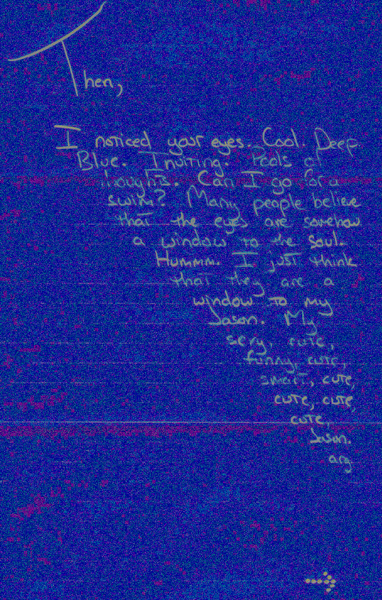 Then,
I noticed your eyes. Cool. Deep
Blue. Inviting. Pools of
thoughts. Can I go for a
swim? Many people believe
that the eyes are somehow
a window to the soul.
Hummm. I just think
that they are a
window to my
Jason. My
sexy, cute,
funny, cute,
smart, cute,
cute, cute,
cute,
Jason.